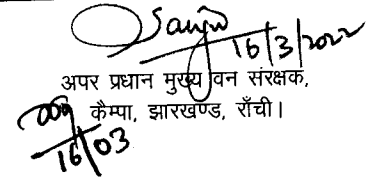 Sanjiv
16/3/2022
अपर प्रधान मुख्य वन संरक्षक,
कैम्पा, झारखण्ड, राँची।
16/03